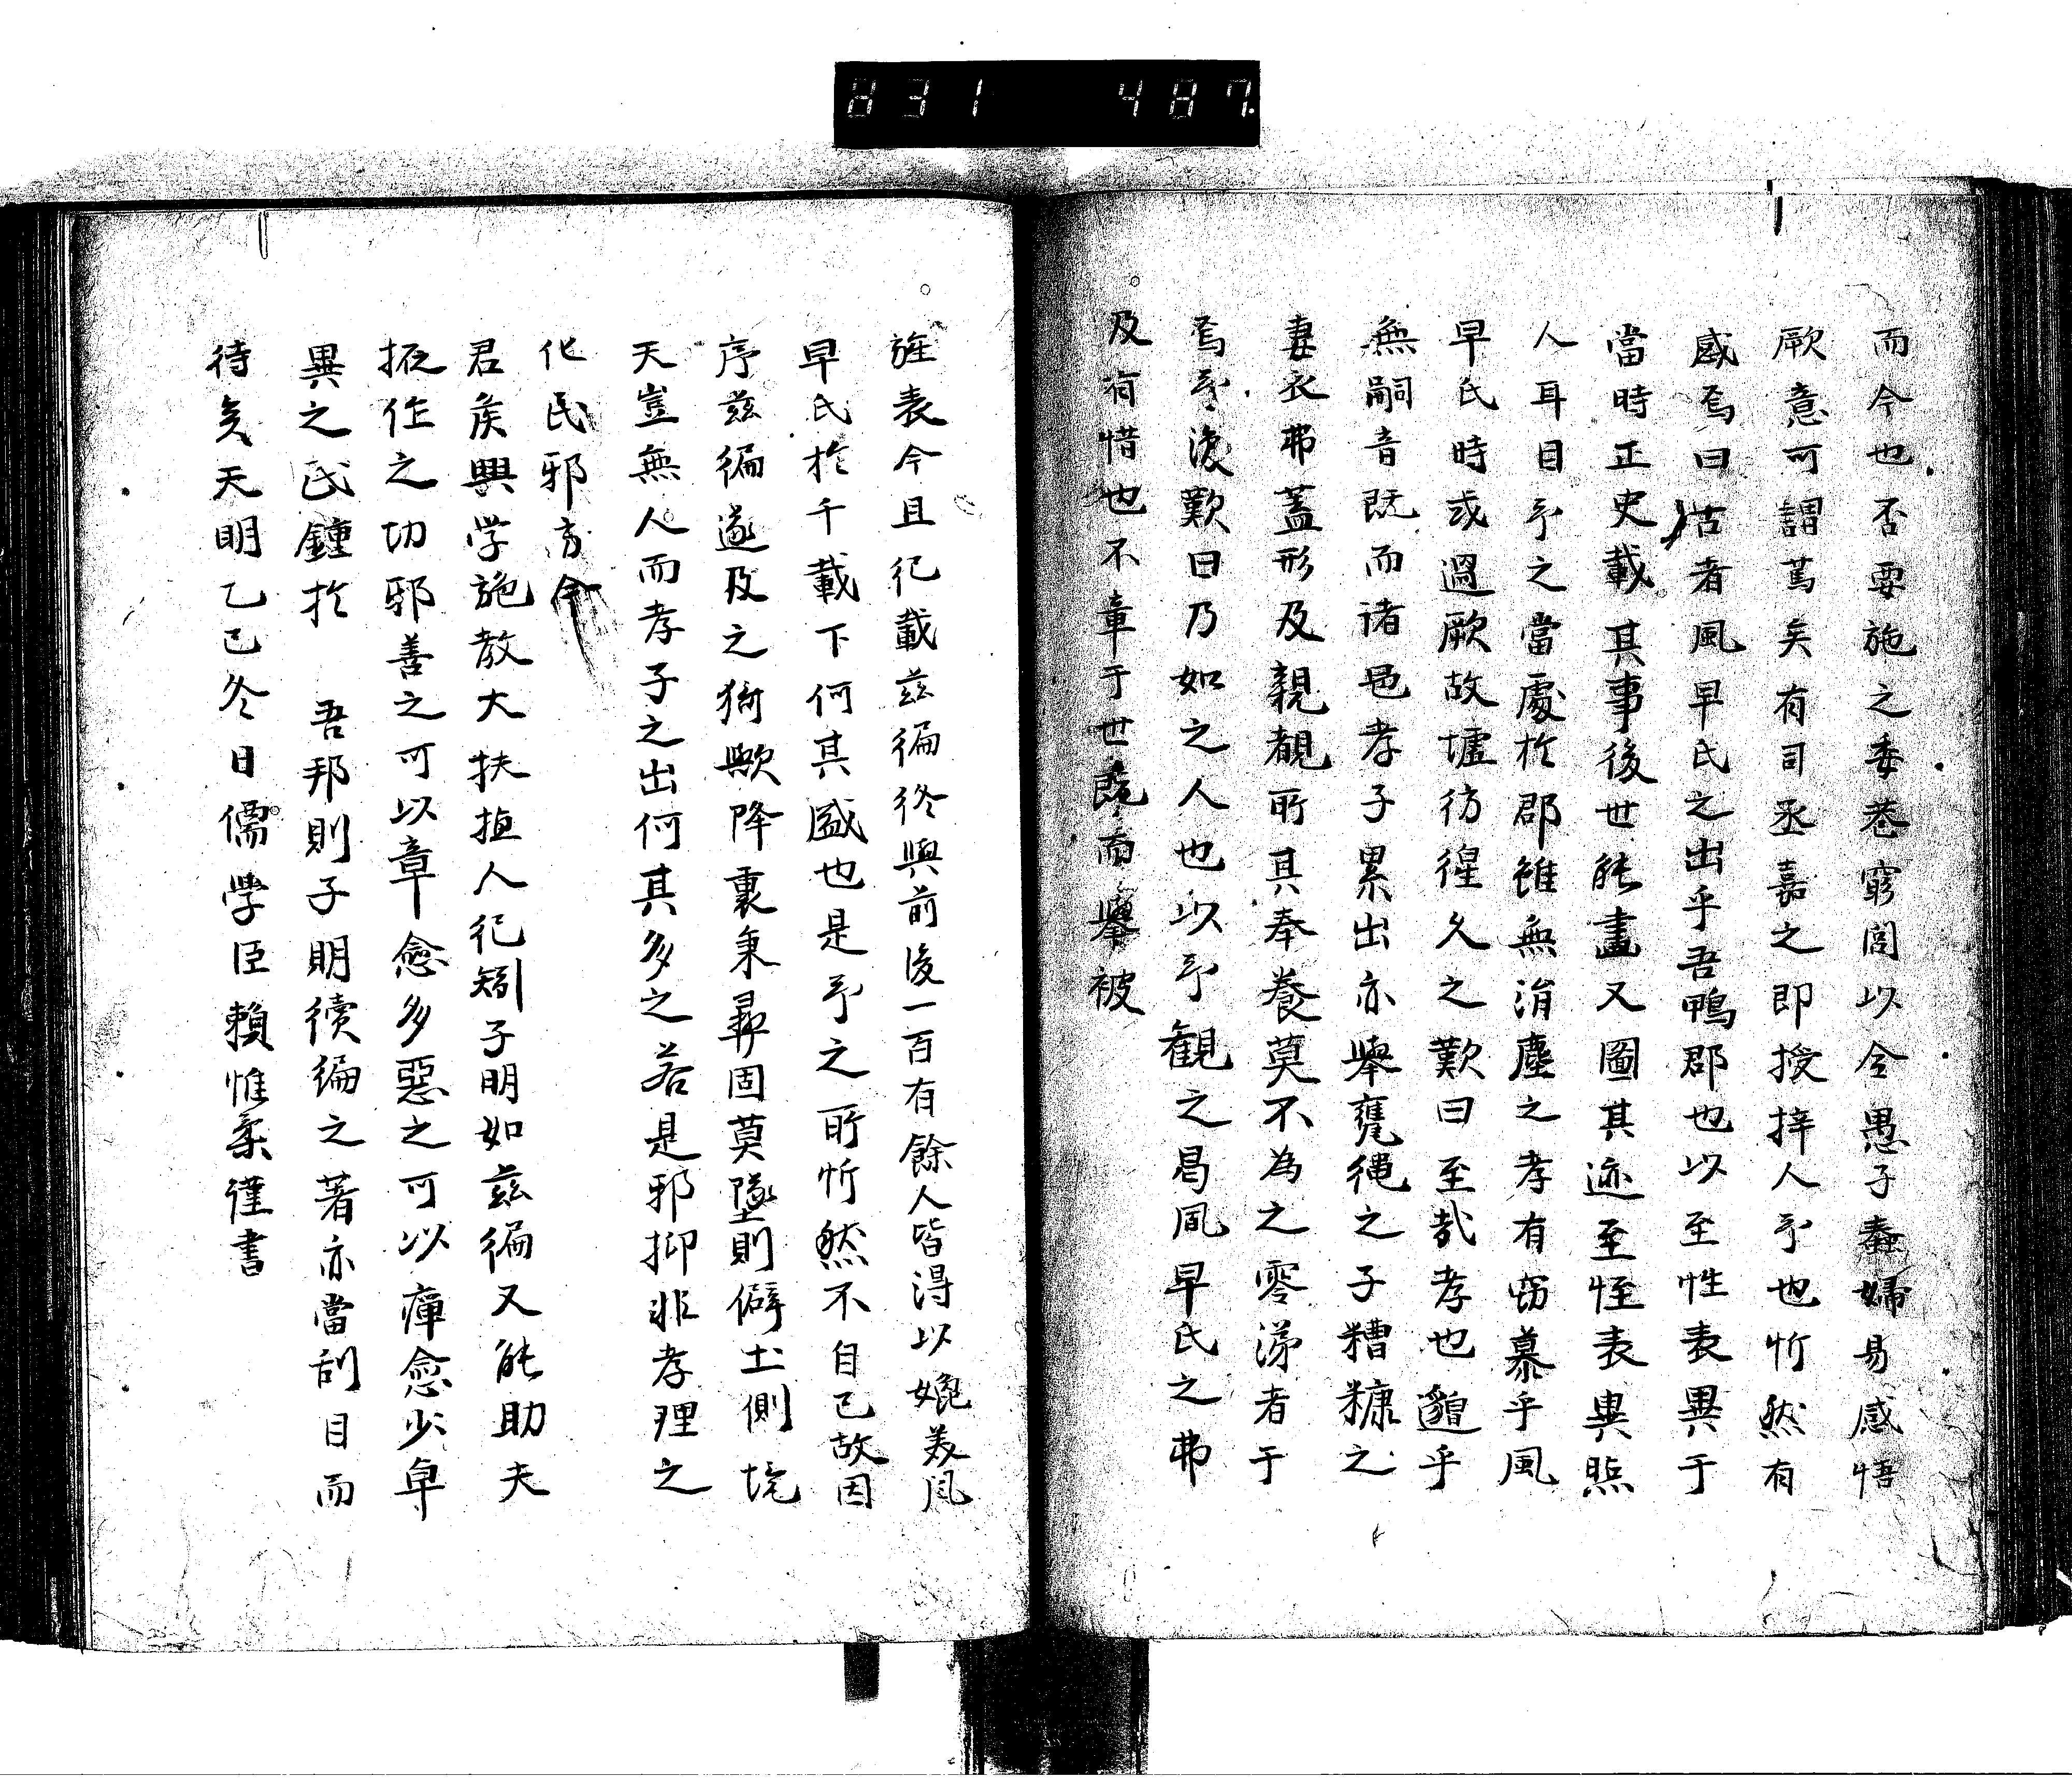 831 487
而今也否要施之委巷窮閭以令愚子蠢婦易感悟
厥意可謂篤矣有司丞嘉之即授梓人予也忻然有
感焉曰古者風早氏之出乎吾鴨郡也以至性表異于
當時正史載其事後世能畫又圖其迹至恠表異照
人耳目予之當處於郡雖無涓塵之孝有窃慕乎風
早氏時或過厥故墟彷徨久之歎曰至哉孝也邈乎
無嗣音既而諸邑孝子累出亦舉甕繩之子糟糠之
妻衣弗蓋形及親覩所其奉養莫不為之零涕者于
焉予復歎曰乃如之人也以予観之曷風早氏之弗
及有惜也不章于世既而舉被
旌表今且祀載茲編終與前後一百有餘人皆得以媲美風
早氏於千載下何其盛也是予之所忻然不自已故因
序茲編遂及之猗歟降裏秉彛固莫墜則僻土側境
天豈無人而孝子之出何其多之若是邪抑非孝理之
化民邪方今
君侯興学施教大扶植人祀矧子明如茲編又能助夫
掖作之功邪善之可以章愈多惡之可以癉愈少卓
異之民鍾於 吾邦則子明續編之著亦當刮目而
待矣天明乙巳冬日儒學臣賴惟柔謹書